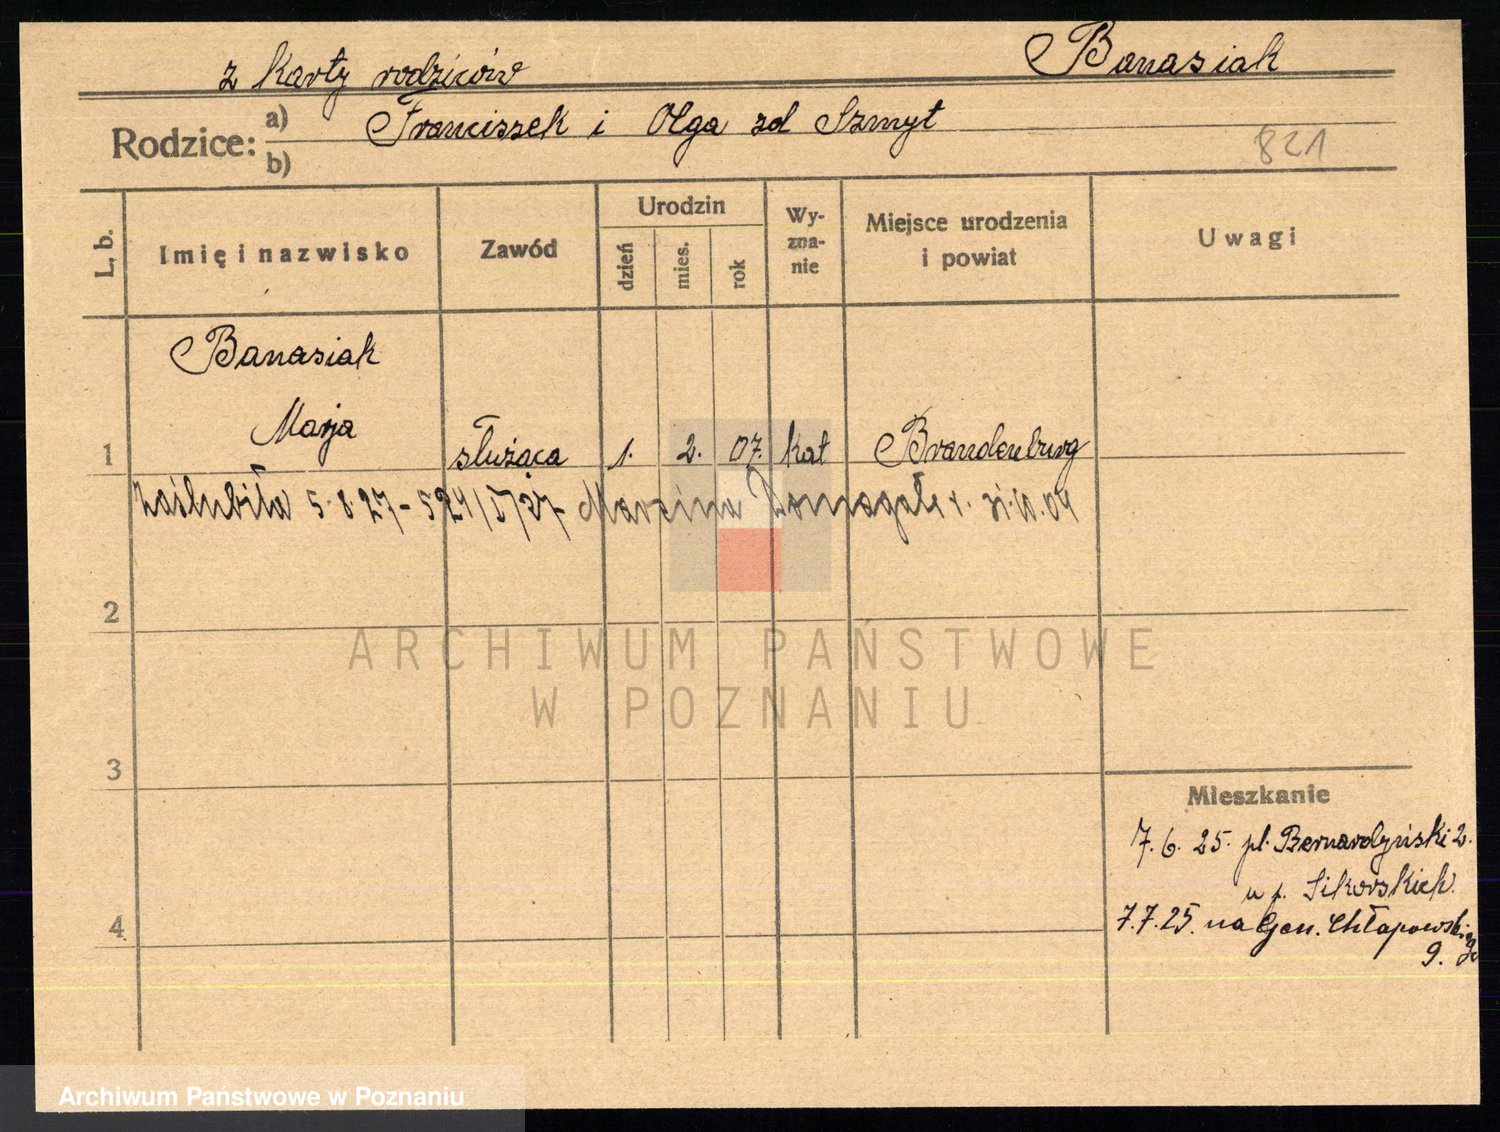 Banasiak
z karty rodziców
Rodzice: a) Franciszek i Olga zd Szmyt
b)
821
L. b.
Imię i nazwisko
Zawód
Urodzin
dzień
mies.
rok
Wy-
zna-
nie
Miejsce urodzenia
i powiat
Uwagi
Banasiak
1 Marja służąca 1. 2. 07. kat Brandenburg
Zaślubiła 5.8.27 - 524/I/27 Marcina Domagałę
2
3
4
Mieszkanie
7.6.25. pl. Bernardyński 2.
u p. Sikorskich.
7.7.25. na Gen. Chłapowskiego
9.
ARCHIWUM PAŃSTWOWE
W POZNANIU
Archiwum Państwowe w Poznaniu